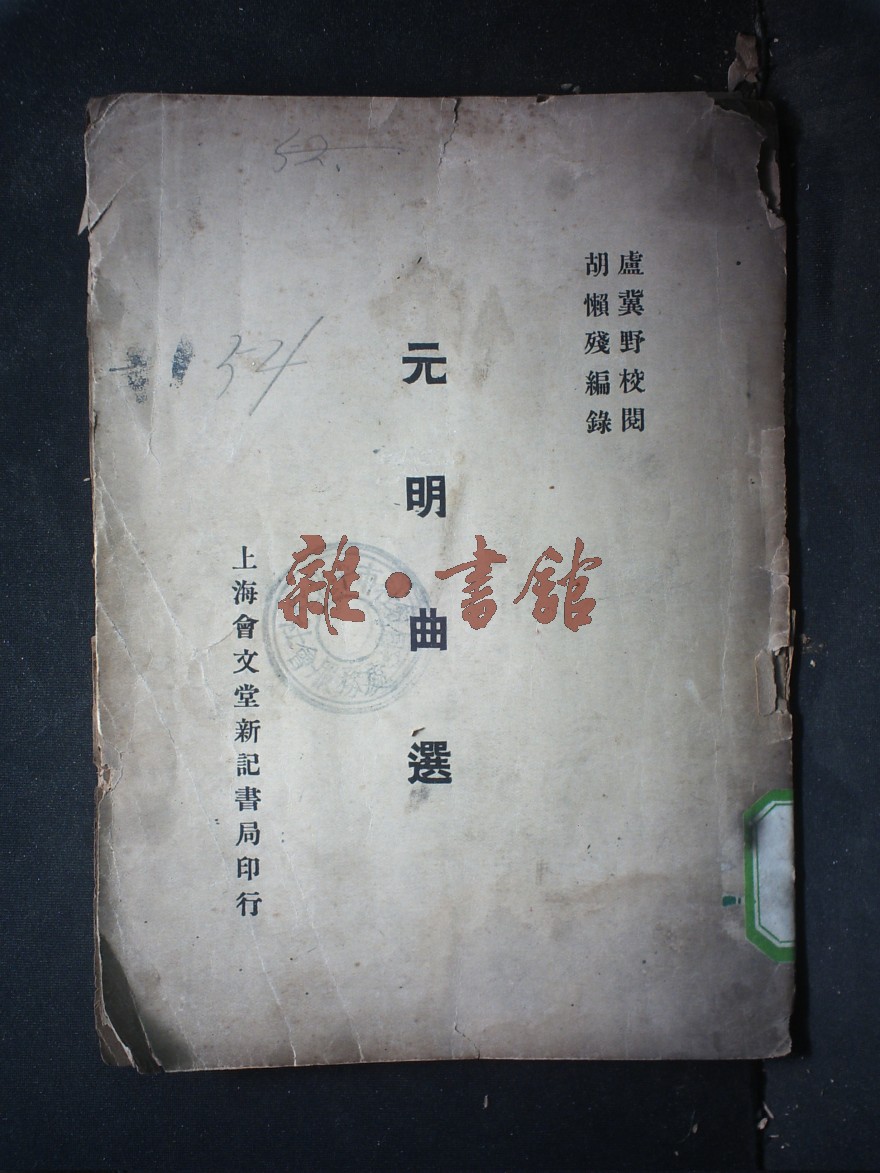 盧冀野校閱
胡懶殘編錄
元明曲選
上海會文堂新記書局印行
雜·書館
52
54